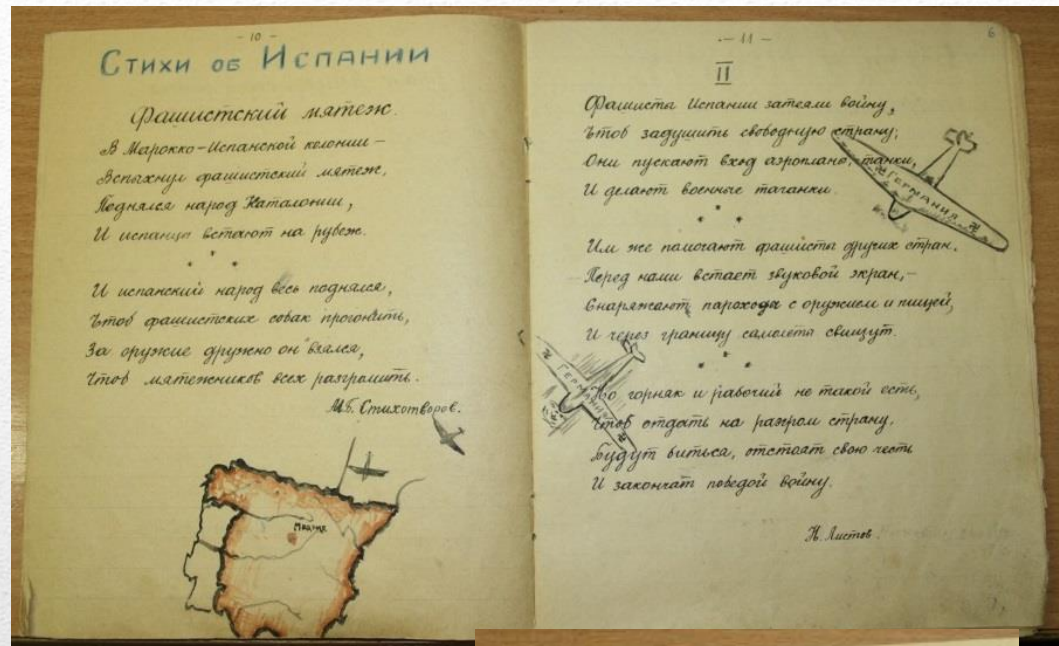 - 10 -
Стихи об Испании
Фашистский мятеж.
В Марокко-Испанской колонии –
Вспыхнул фашистский мятеж,
Поднялся народ Каталонии,
И испанцы встают на рубеж.
* * *
И испанский народ весь поднялся,
Чтоб фашистских собак прогонить,
За оружие дружно он взялся,
Чтоб мятежников всех разгромить.
М.Б. Стихотворов.
Мадрид
- 11 -
6
II
Фашисты Испании затеяли войну,
Чтоб задушить свободную страну;
Они пускают вход аэропланы, танки,
И делают военные таганки.
* * *
Им же помогают фашисты других стран.
Перед нами встает звуковой экран, –
Снаряжают пароходы с оружием и пищей,
И через границу самолеты свищут.
* * *
Но горняк и рабочий не такой есть,
Чтоб отдать на разгром страну.
Будут биться, отстоят свою честь
И закончат победой войну.
Н. Листов.
ГЕРМАНИЯ
ГЕРМАНИЯ